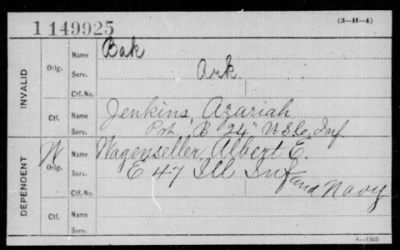 1149925
(3-H-4)
INVALID
Orig.
Name
Bak
Serv.
Ark.
Ctf. No.
Ctf.
Name
Jenkins, Azariah
Serv.
Pvt. B 24" U.S.C. Inf
DEPENDENT
W
Orig.
Name
Wagenseller, Albert E.
Serv.
E 47 Ill Inf
and Navy
Ctf. No.
Ctf.
Name
Serv.